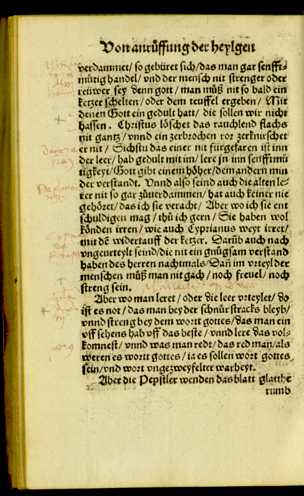 Von anrüffung der heylgen
verdammet/ so gebüret sich/ das man gar senfft-
mütig handel/ vnd der mensch nit strenger oder
reüwer sey denn gott/ man müß nit so bald ein
ketzer schelten/ oder dem teuffel ergeben/ Mit
denen Gott ein gedult hatt/ die sollen wir nicht
hassen. Christus löschet das rauchlend flachs
nit gantz/ vnnd ein zerbrochen ror zerknirschet
er nit/ Sichstu das einer nit fürgefaren ist inn
der leer/ hab gedult mit im/ lere jn inn senfftmü
tigkeyt/ Gott gibt einem höher/ dem andern min
der verstandt. Vnnd also seind auch die alten le-
rer nit so gar züuerdammen/ hat auch keiner nie
gehöret/ das ich sie veracht/ Aber wo ich sie ent
schuldigen mag/ thü ich gern/ Sie haben wol
können irren/ wie auch Cyprianus weyt irret/
mit dē widertauff der ketzer. Darüb auch nach
vngeurteylt seind/ die nit ein gnügsam verstand
haben des herren nachtmals/ Dañ im vrteyl der
menschen müß man nit gach/ noch freuel/ noch
streng sein.
Aber wo man leret/ oder die leer vrteylet/ do
ist es not/ das man bey der schnür stracks bleyb/
vnnd streng bey dem wortt gottes/ das man ein
vff sehens hab vff das beste/ vnnd lere das vol-
komnest/ vnnd was man redt/ das red man/ als
weren es wortt gottes/ ia es sollen wort gottes
sein/ vnd wort vngezweyfelter warheyt.
Aber die Pepstler wenden das blatt glatthe
rumb